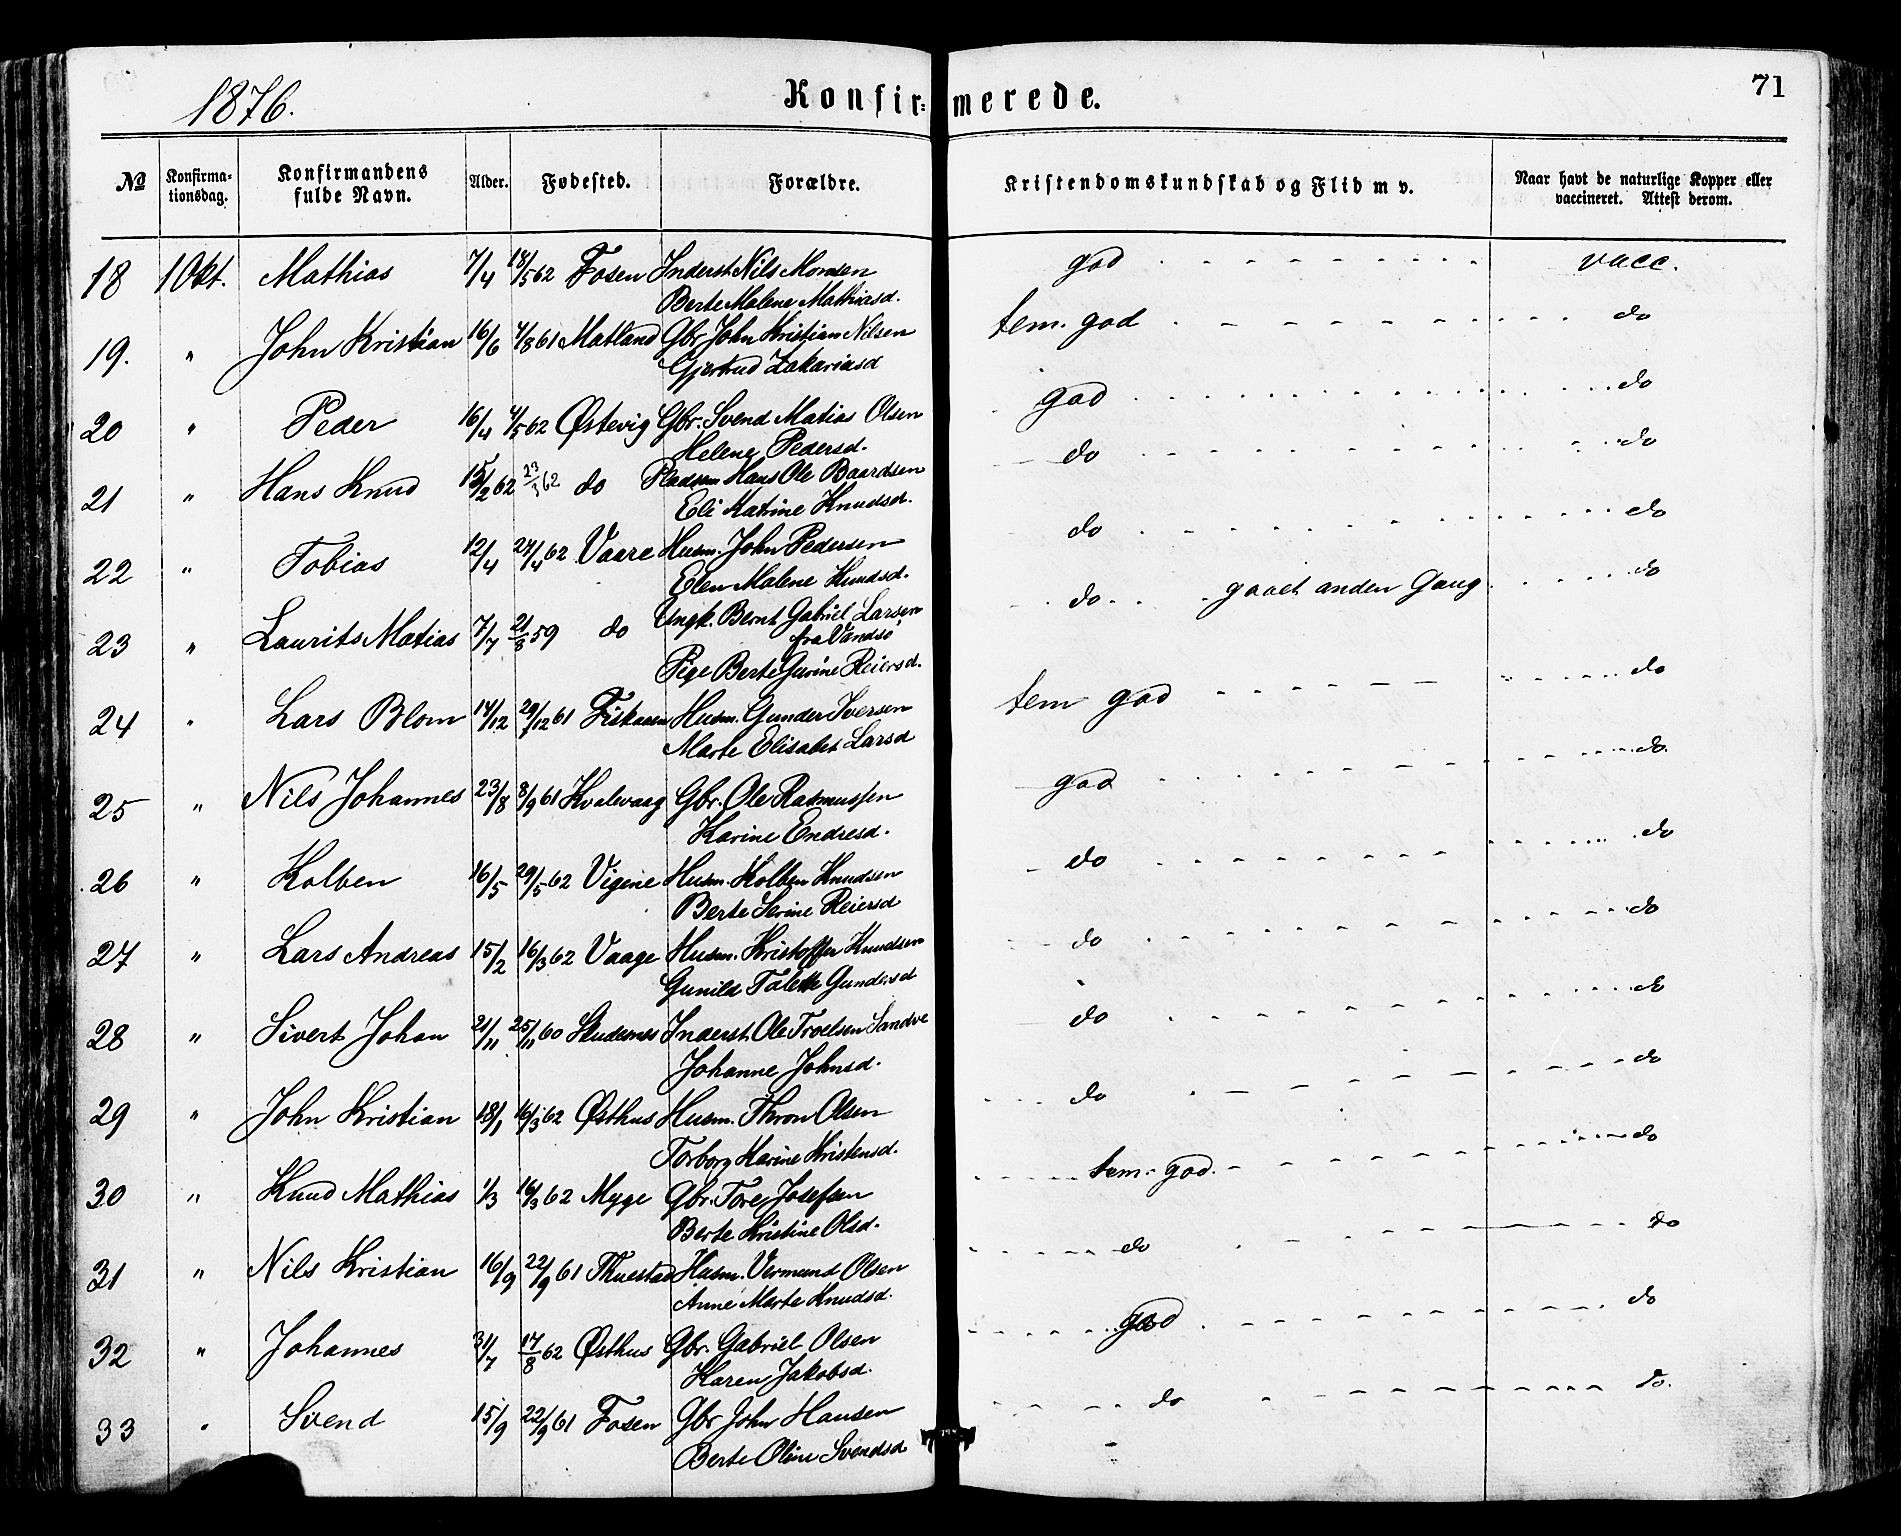 1876.
Konfir-merede.
71
No
Konfirma-
tionsdag.
Konfirmandens
fulde Navn.
Alder.
Fødested.
Forældre.
Kristendomskundskab og Flid m v.
Naar havt de naturlige Kopper eller
vaccineret. Attest derom.
18 1 Okt. Mathias 7/4 18/5 62 Fosen Inderst Nils Monsen god vacc.
Berte Malene Mathiasd.
19. " John Kristian 16/6 4/8 61 Matland Gbr. John Kristian Nilsen tem. god do
Gjertrud Zakariasd
20 " Peder 16/4 4/5 62 Østevig Gbr. Svend Matias Olsen god do
Helene Pedersd.
21 " Hans Knud 15/2 62 23/3 62 do Pladsm Hans Ole Baardsen do do
Eli Katrine Knudsd.
22 " Tobias 12/4 27/4 62 Vaare Husm. John Pedersen do do
Elen Malene Knudsd.
23 " Laurits Matias 7/7 21/8 59 do Ungk. Bernt Gabriel Larsen do gaaet anden Gang do
fra Vandsø
Pige Berte Gurine Reiersd.
24 " Lars Blom 14/12 29/12 61 Fiskaaen Husm. Gunder Iversen tem god do
Marte Elisabet Larsd
25 " Nils Johannes 23/8 8/9 61 Kvalevaag Gbr. Ole Rasmussen god do
Karine Endresd.
26 " Kolben 16/5 29/5 62 Vigene Husm. Kolben Knudsen do do
Berte Serine Reiersd
27 " Lars Andreas 15/2 16/3 62 Vaage Husm. Kristoffer Knudsen do do
Gunild Talette Gundersd
28 " Sivert Johan 21/11 25/11 60 Skudesnes Inderst. Ole Troelsen Sandve do do
Johanne Johnsd.
29 " John Kristian 18/1 16/3 62 Østhus Husm. Thron Olsen do do
Torborg Karine Kristensd.
30 " Knud Mathias 1/3 16/3 62 Myge Gbr. Tore Josefsen tem. god. do
Berte Kristine Olsd.
31 " Nils Kristian 16/9 22/9 61 Thuestad Husm. Vermund Olsen do do
Anne Marte Knudsd.
32 " Johannes 31/7 17/8 62 Østhus Gbr. Gabriel Olsen god do
Karen Jakobsd.
33 " Svend 15/9 22/9 61 Fosen Gbr John Hansen do do.
Berte Oline Svendsd.